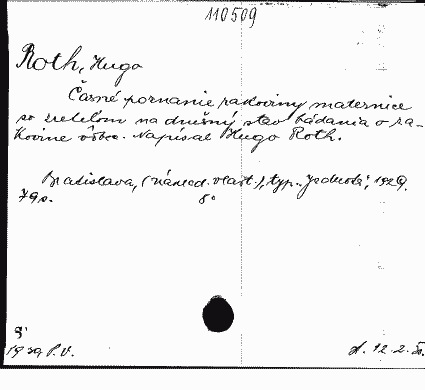 110509
Roth, Hugo
Časné poznanie rakoviny maternice
so zreteľom na dnešný stav bádania o ra-
kovine vôbec. Napísal Hugo Roth.
Bratislava, (náklad. vlast.), typ. "Jednota", 1929.
79 s. 8°
8'
1929 P.V.
12. 2.